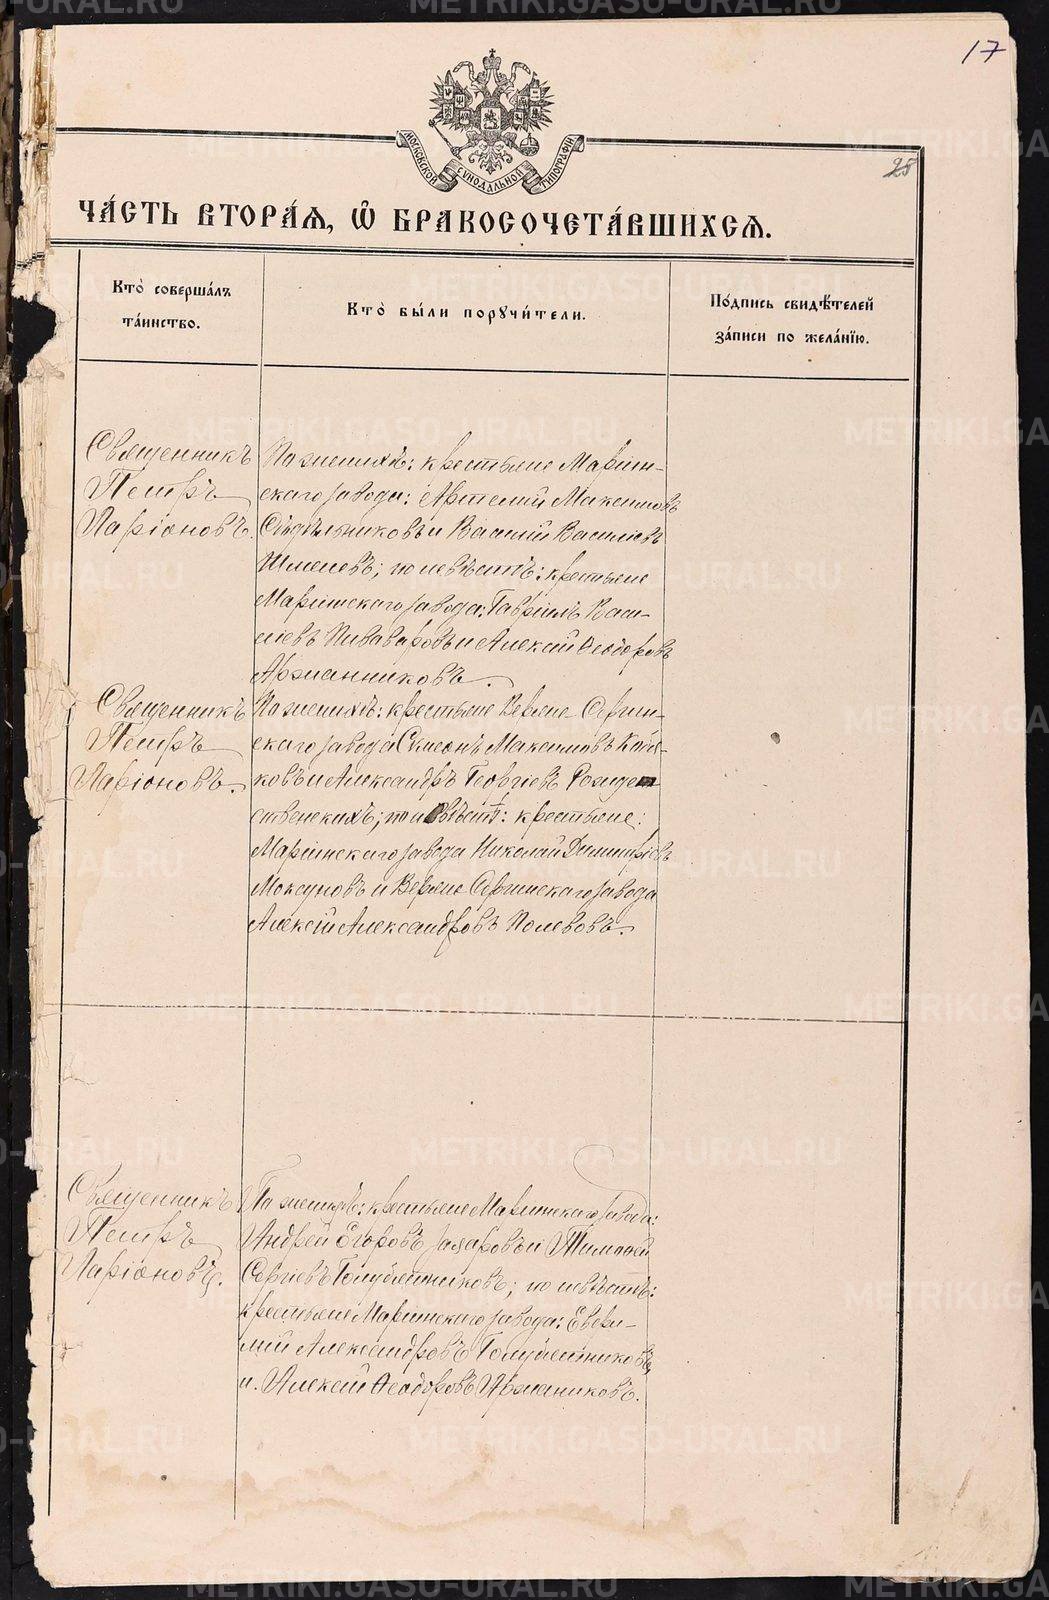 17
25
МОСКОВСКОЙ СѴНОДАЛЬНОЙ ТИПОГРАФІИ
ЧА́СТЬ ВТОРА́Я, Ѽ БРАКОСОЧЕТА́ВШИХСЯ.
Кто̀ совершáлъ
тáинство.
Кто̀ бы́ли порꙋчи́тели.
Пóдпись свидѣ́телей
зáписи по желáнїю.
Священникъ
Петръ
Ларіоновъ.
По женихѣ: крестьяне Маріин-
скаго завода: Артемій Максимовъ
Сѣдѣльниковъ и Василій Василіевъ
Шмелевъ; по невѣстѣ: крестьяне
Маріинскаго завода: Гавріилъ Васи-
ліевъ Пивоваровъ и Алексій Ѳеодоровъ
Аржанниковъ.
Священникъ
Петръ
Ларіоновъ.
По женихѣ: крестьяне Верхне Сергин-
скаго завода Симеонъ Максимовъ
ковъ и Александръ Георгіевъ Рожде-
ственскихъ; по невѣстѣ: крестьяне:
Маріинскаго завода Николай Димитріевъ
и Верхне Сергинскаго завода
Алексій Александровъ Полевовъ.
Священникъ
Петръ
Ларіоновъ.
По женихѣ: крестьяне Маріинскаго завода:
Андрей Егоровъ Захаровъ и Тимофей
Сергіевъ Голубятниковъ; по невѣстѣ:
крестьяне Маріинскаго завода:
Александровъ Голубятниковъ,
и Алексій Ѳеодоровъ Аржаниковъ.
METRIKI.GASO-URAL.RU